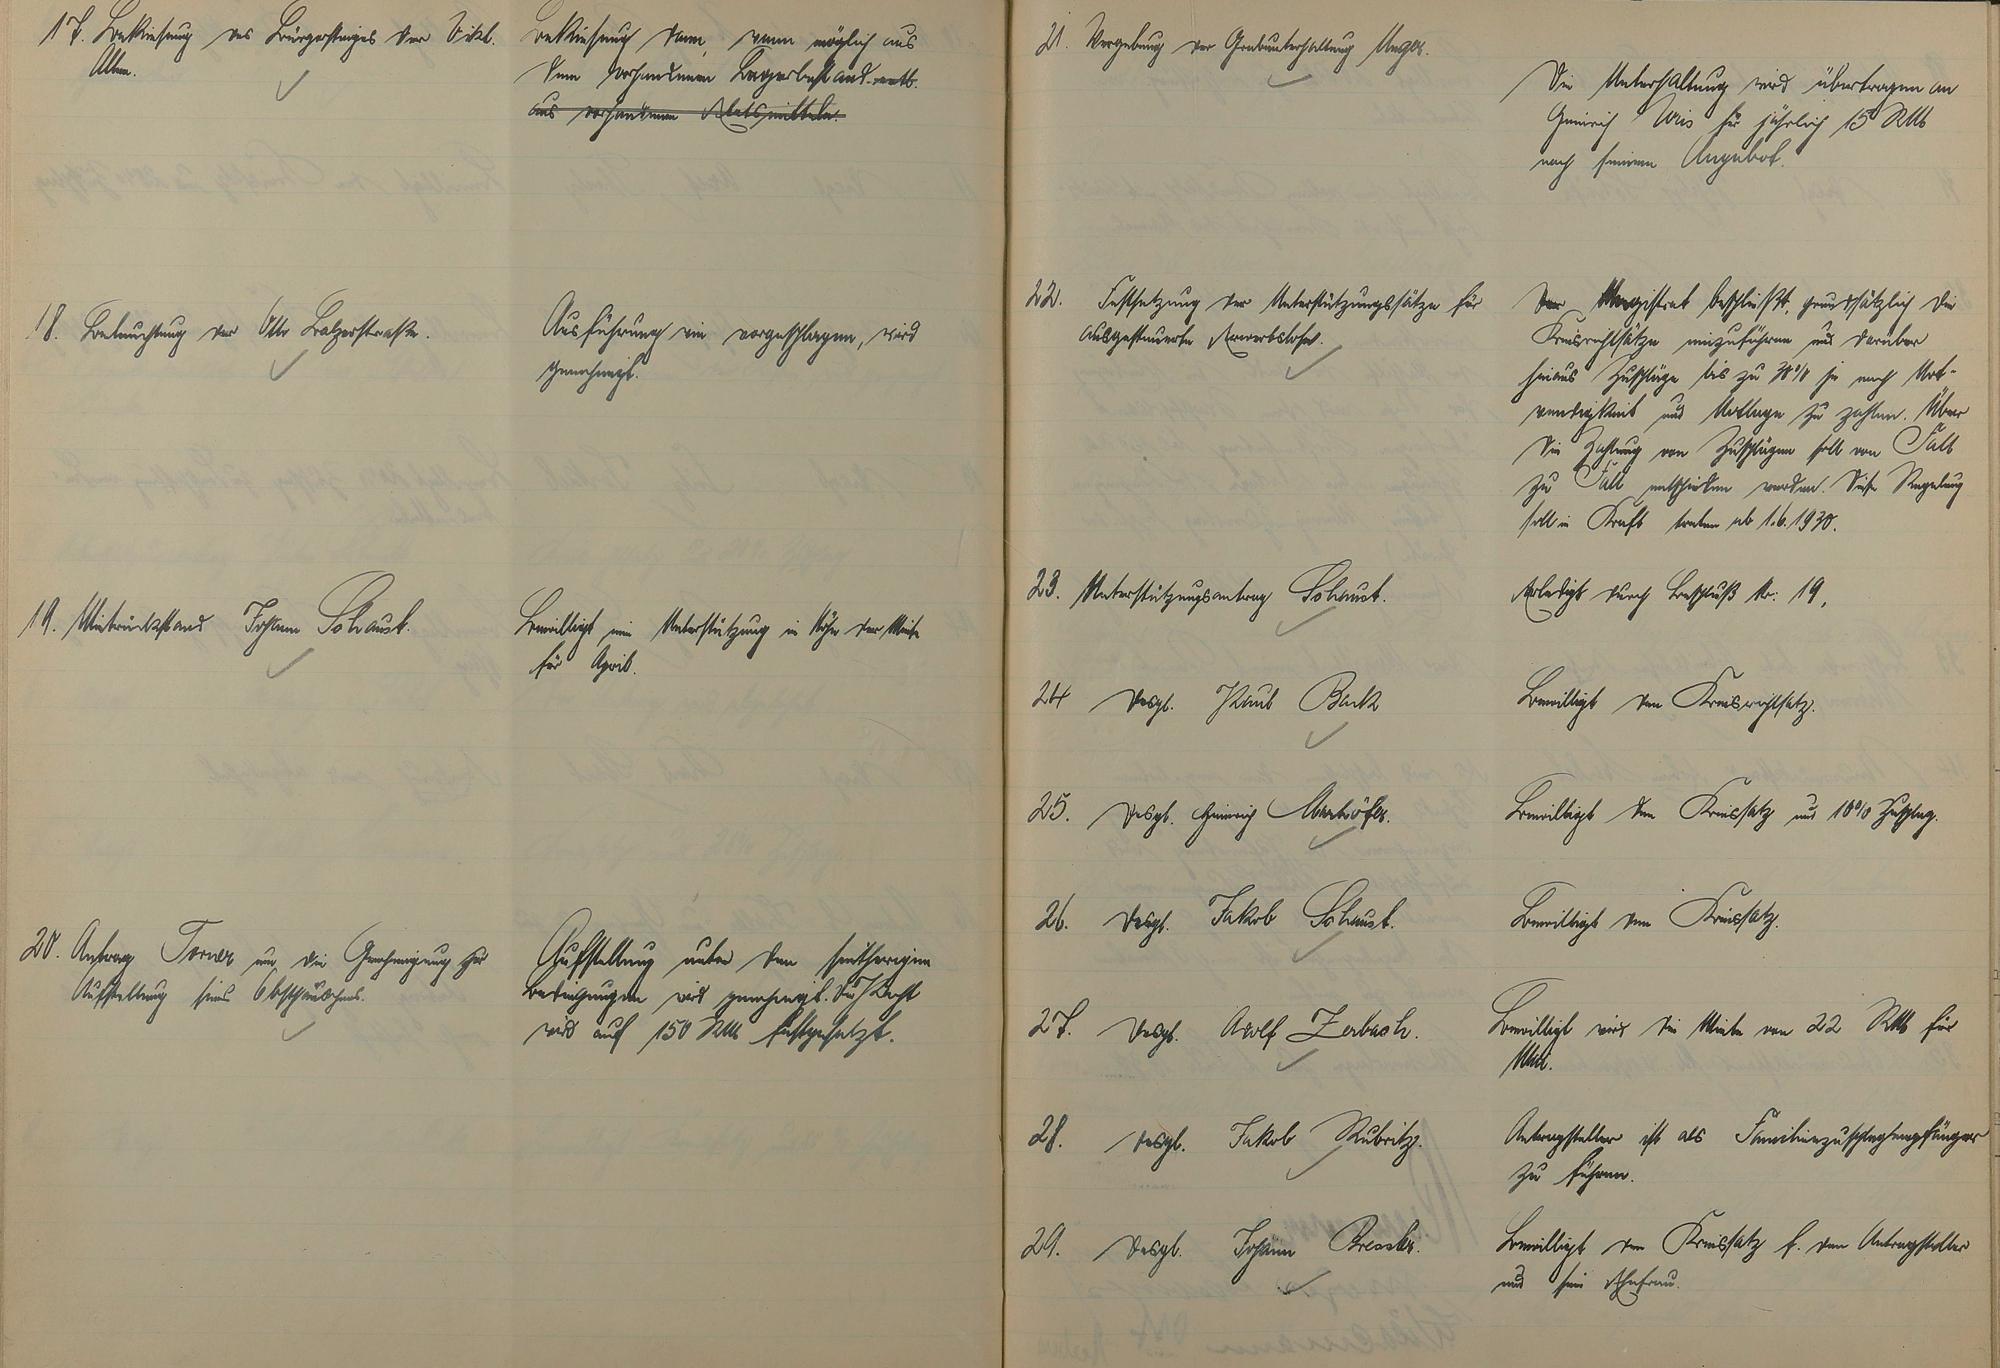 17. Bekiesung des Bürgersteiges der Vikt.
Allee.
Bekiesung dann, wenn möglich aus
dem vorhandenen Lagerbestand
aus vorhandenen Etatsmitteln.
18. Beleuchtung der Otto Balzerstraße.
Ausführung wie vorgeschlagen, wird
genehmigt.
19. Mietrückstand Johann Schaust.
Bewilligt eine Unterstützung in Höhe der Miete
für April.
20. Antrag Forner um die Genehmigung zur
Aufstellung seines Obsthäuschens.
Aufstellung unter den seitherigen
Bedingungen wird genehmigt. Die Pacht
wird auf 150 RM festgesetzt.
21. Vergebung der Grabunterhaltung Unger.
Die Unterhaltung wird übertragen an
Heinrich für jährlich 15 RM
nach seinem Angebot.
22. Festsetzung der Unterstützungssätze für
ausgesteuerte Erwerbslose.
Der Magistrat beschließt, grundsätzlich die
Kreisrichtsätze einzuführen und darüber
hinaus Zuschläge bis zu 30% je nach Not-
wendigkeit und Notlage zu zahlen. Über
die Zahlung von Zuschlägen soll von Fall
zu Fall entschieden werden. Diese Regelung
soll in Kraft treten ab 1.6.1930.
23. Unterstützungsantrag Schaust.
Erledigt durch Beschluß Nr. 19,
24 Desgl. Paul Back
Bewilligt den Kreisrichtsatz.
25. Desgl. Heinrich
Bewilligt den Kreissatz und 10% Zuschlag.
26. Desgl. Jakob Schaust.
Bewilligt den Kreissatz.
27. Desgl. Adolf Zerbach.
Bewilligt wird die Miete von 22 RM für
Mai.
28. Desgl. Jakob Rubritz.
Antragsteller ist als Familienzuschlagempfänger
zu führen.
29. Desgl. Johann Bressler.
Bewilligt den Kreissatz f. den Antragsteller
und sein Ehefrau.